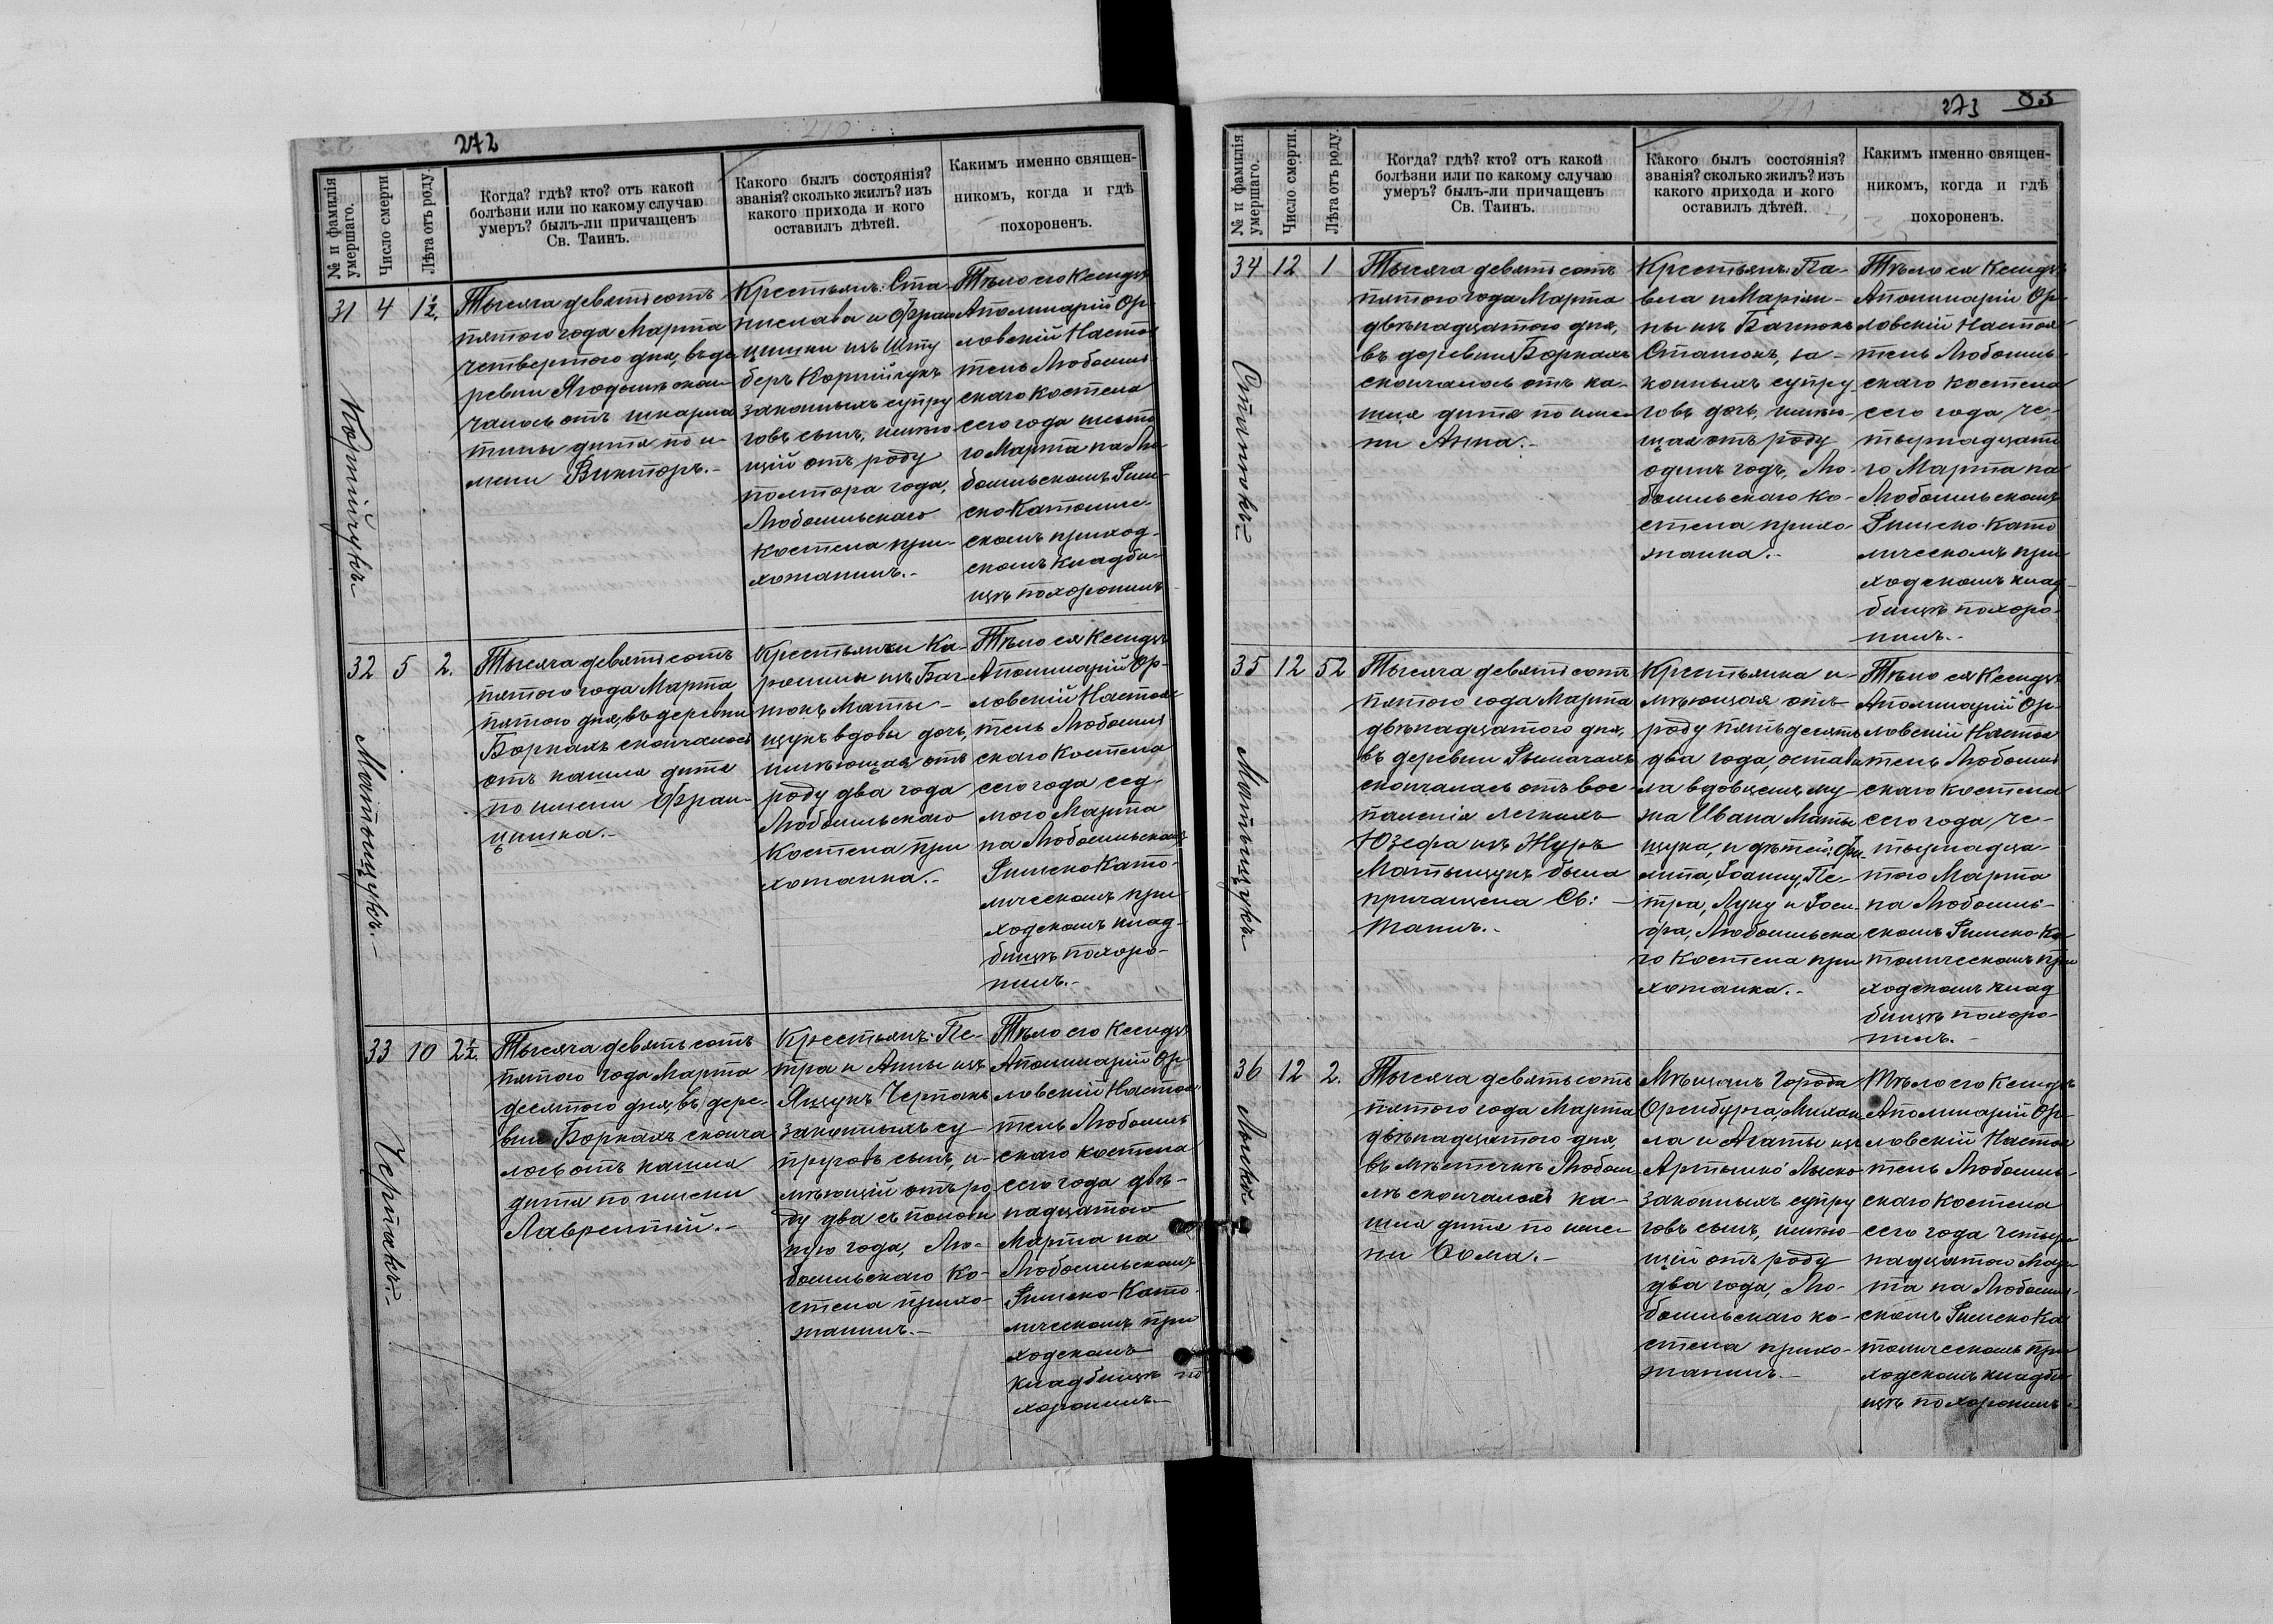 272
№ и фамилія умершаго.
Число смерти
Лѣта отъ роду.
Когда? гдѣ? кто? отъ какой
болѣзни или по какому случаю
умеръ? былъ-ли причащенъ
Св. Таинъ.
Какого былъ состоянія?
званія? сколько жилъ? изъ
какого прихода и кого
оставилъ дѣтей.
Какимъ именно священ-
никомъ, когда и гдѣ
похороненъ.
31 4 1½.
Корнійчукъ
Тысяча девятьсотъ
пятого года Марта
четвертого дня, въ де
ревни Ягодынѣ скон
чалось отъ шкарла
тины дитя по и-
мени Викторъ.-
Крестьянъ: Ста-
нислава и Фран
цишки изъ Шту
беръ Корнійчукъ
законныхъ супру
говъ сынъ, имѣю
щій отъ роду
полтора года,
Любомльскаго
Костела при-
хожанинъ.-
Тѣло его Ксендзъ
Аполинарій Ор-
ловскій Настоя
тель Любомль
скаго Костела
сего года шесто
го Марта на Лю
бомльскомъ Рим-
ско-Католиче-
скомъ приход-
скомъ кладби-
щѣ похоронилъ
32 5 2.
Матыщукъ.-
Тысяча девятьсотъ
пятого года Марта
пятого дня, въ деревни
Боркахъ скончалось
отъ кашля дитя
по имени Фран-
цишка.-
Крестьянки Ка-
ролины изъ Баг-
нюкъ Маты-
щукъ вдовы дочь,
имѣющая отъ
роду два года
Любомльскаго
Костела при
хожанка.-
Тѣло ея Ксендзъ
Аполинарій Ор-
ловскій Настоя-
тель Любомль
скаго Костела
сего года сед-
мого Марта
на Любомльскомъ
Римско Като-
лическомъ при-
ходскомъ клад-
бищѣ похоро-
нилъ.-
33 10 2½.
Черпакъ.-
Тысяча девятьсотъ
пятого года Марта
десятого дня, въ дере-
вни Боркахъ сконча
лось отъ кашля
дитя по имени
Лаврентій.-
Крестьянъ: Пе-
тра и Анны изъ
Ящукъ Черпакъ
законныхъ су-
пруговъ сынъ, и-
мѣющій отъ ро
ду два съ полови
ную года, Лю-
бомльскаго Ко-
стела прихо-
жанинъ.-
Тѣло его Ксендзъ
Аполинарій Ор-
ловскій Настоя
тель Любомль
скаго костела
сего года двѣ-
надцатого
Марта на
Любомльскомъ
Римско-Като-
лическомъ при
ходскомъ
кладбищѣ по
хоронилъ.-
273 83
№ и фамилія умершаго.
Число смерти.
Лѣта отъ роду.
Когда? гдѣ? кто? отъ какой
болѣзни или по какому случаю
умеръ? былъ-ли причащенъ
Св. Таинъ.
Какого былъ состоянія?
званія? сколько жилъ? изъ
какого прихода и кого
оставилъ дѣтей.
Какимъ именно священ-
никомъ, когда и гдѣ
похороненъ.
34 12 1
Тысяча девятьсотъ
пятого года Марта
двѣнадцатого дня,
въ деревни Боркахъ
скончалось отъ ка-
шля дитя по име-
ни Анна.-
Крестьянъ: Па-
вла и Маріан-
ны изъ Багнюкъ
за-
конныхъ супру-
говъ дочь, имѣю-
щая отъ роду
одинъ годъ, Лю-
бомльскаго Ко-
стела прихо-
жанка.-
Тѣло ея Ксендзъ
Аполинарій Ор-
ловскій Настоя-
тель Любомль-
скаго Костела
сего года че-
тырнадцато
го Марта на
Любомльскомъ
Римско-Като
лическомъ при-
ходскомъ клад-
бищѣ похоро-
нилъ.-
35 12 52
Матыщукъ.-
Тысяча девятьсотъ
пятого года Марта
двѣнадцатого дня,
въ деревни Рымачахъ
скончалась отъ вос-
паленія легкихъ
Юзефа изъ Журъ
Матыщукъ была
причащена Св: -
Таинъ.-
Крестьянка и-
мѣющая отъ
роду пятьдесятъ
два года, остави
ла вдовцемъ му-
жа Ивана Маты
щука, и дѣтей:
Іоанну, Пе-
тра, Луку и Іоси-
фа, Любомльска
го Костела при
хожанка.-
Тѣло ея Ксендзъ
Аполинарій Ор-
ловскій Настоя
тель Любомль
скаго костела
сего года че-
тырнадца-
того Марта
на Любомль-
скомъ Римско-Ка
толическомъ при
ходскомъ клад
бищѣ похоро-
нилъ.-
36 12 2.
Лыско.-
Тысяча девятьсотъ
пятого года Марта
двѣнадцатого дня,
въ мѣстечкѣ Любом-
лѣ скончалось ка-
шля дитя по име-
ни Ѳома.-
Мѣщанъ Города
Оренбурга, Михаи
ла и Агаты изъ
Лыско
законныхъ супру
говъ сынъ, имѣю-
щій отъ роду
два года, Лю-
бомльскаго ко-
стела прихо-
жанинъ.-
Тѣло его Ксендзъ
Аполинарій Ор-
ловскій Настоя
тель Любомль-
скаго Костела
сего года четыр
надцатого Мар
та на Любомль-
скомъ Римско Ка
толическомъ при
ходскомъ кладби
щѣ похоронилъ.-